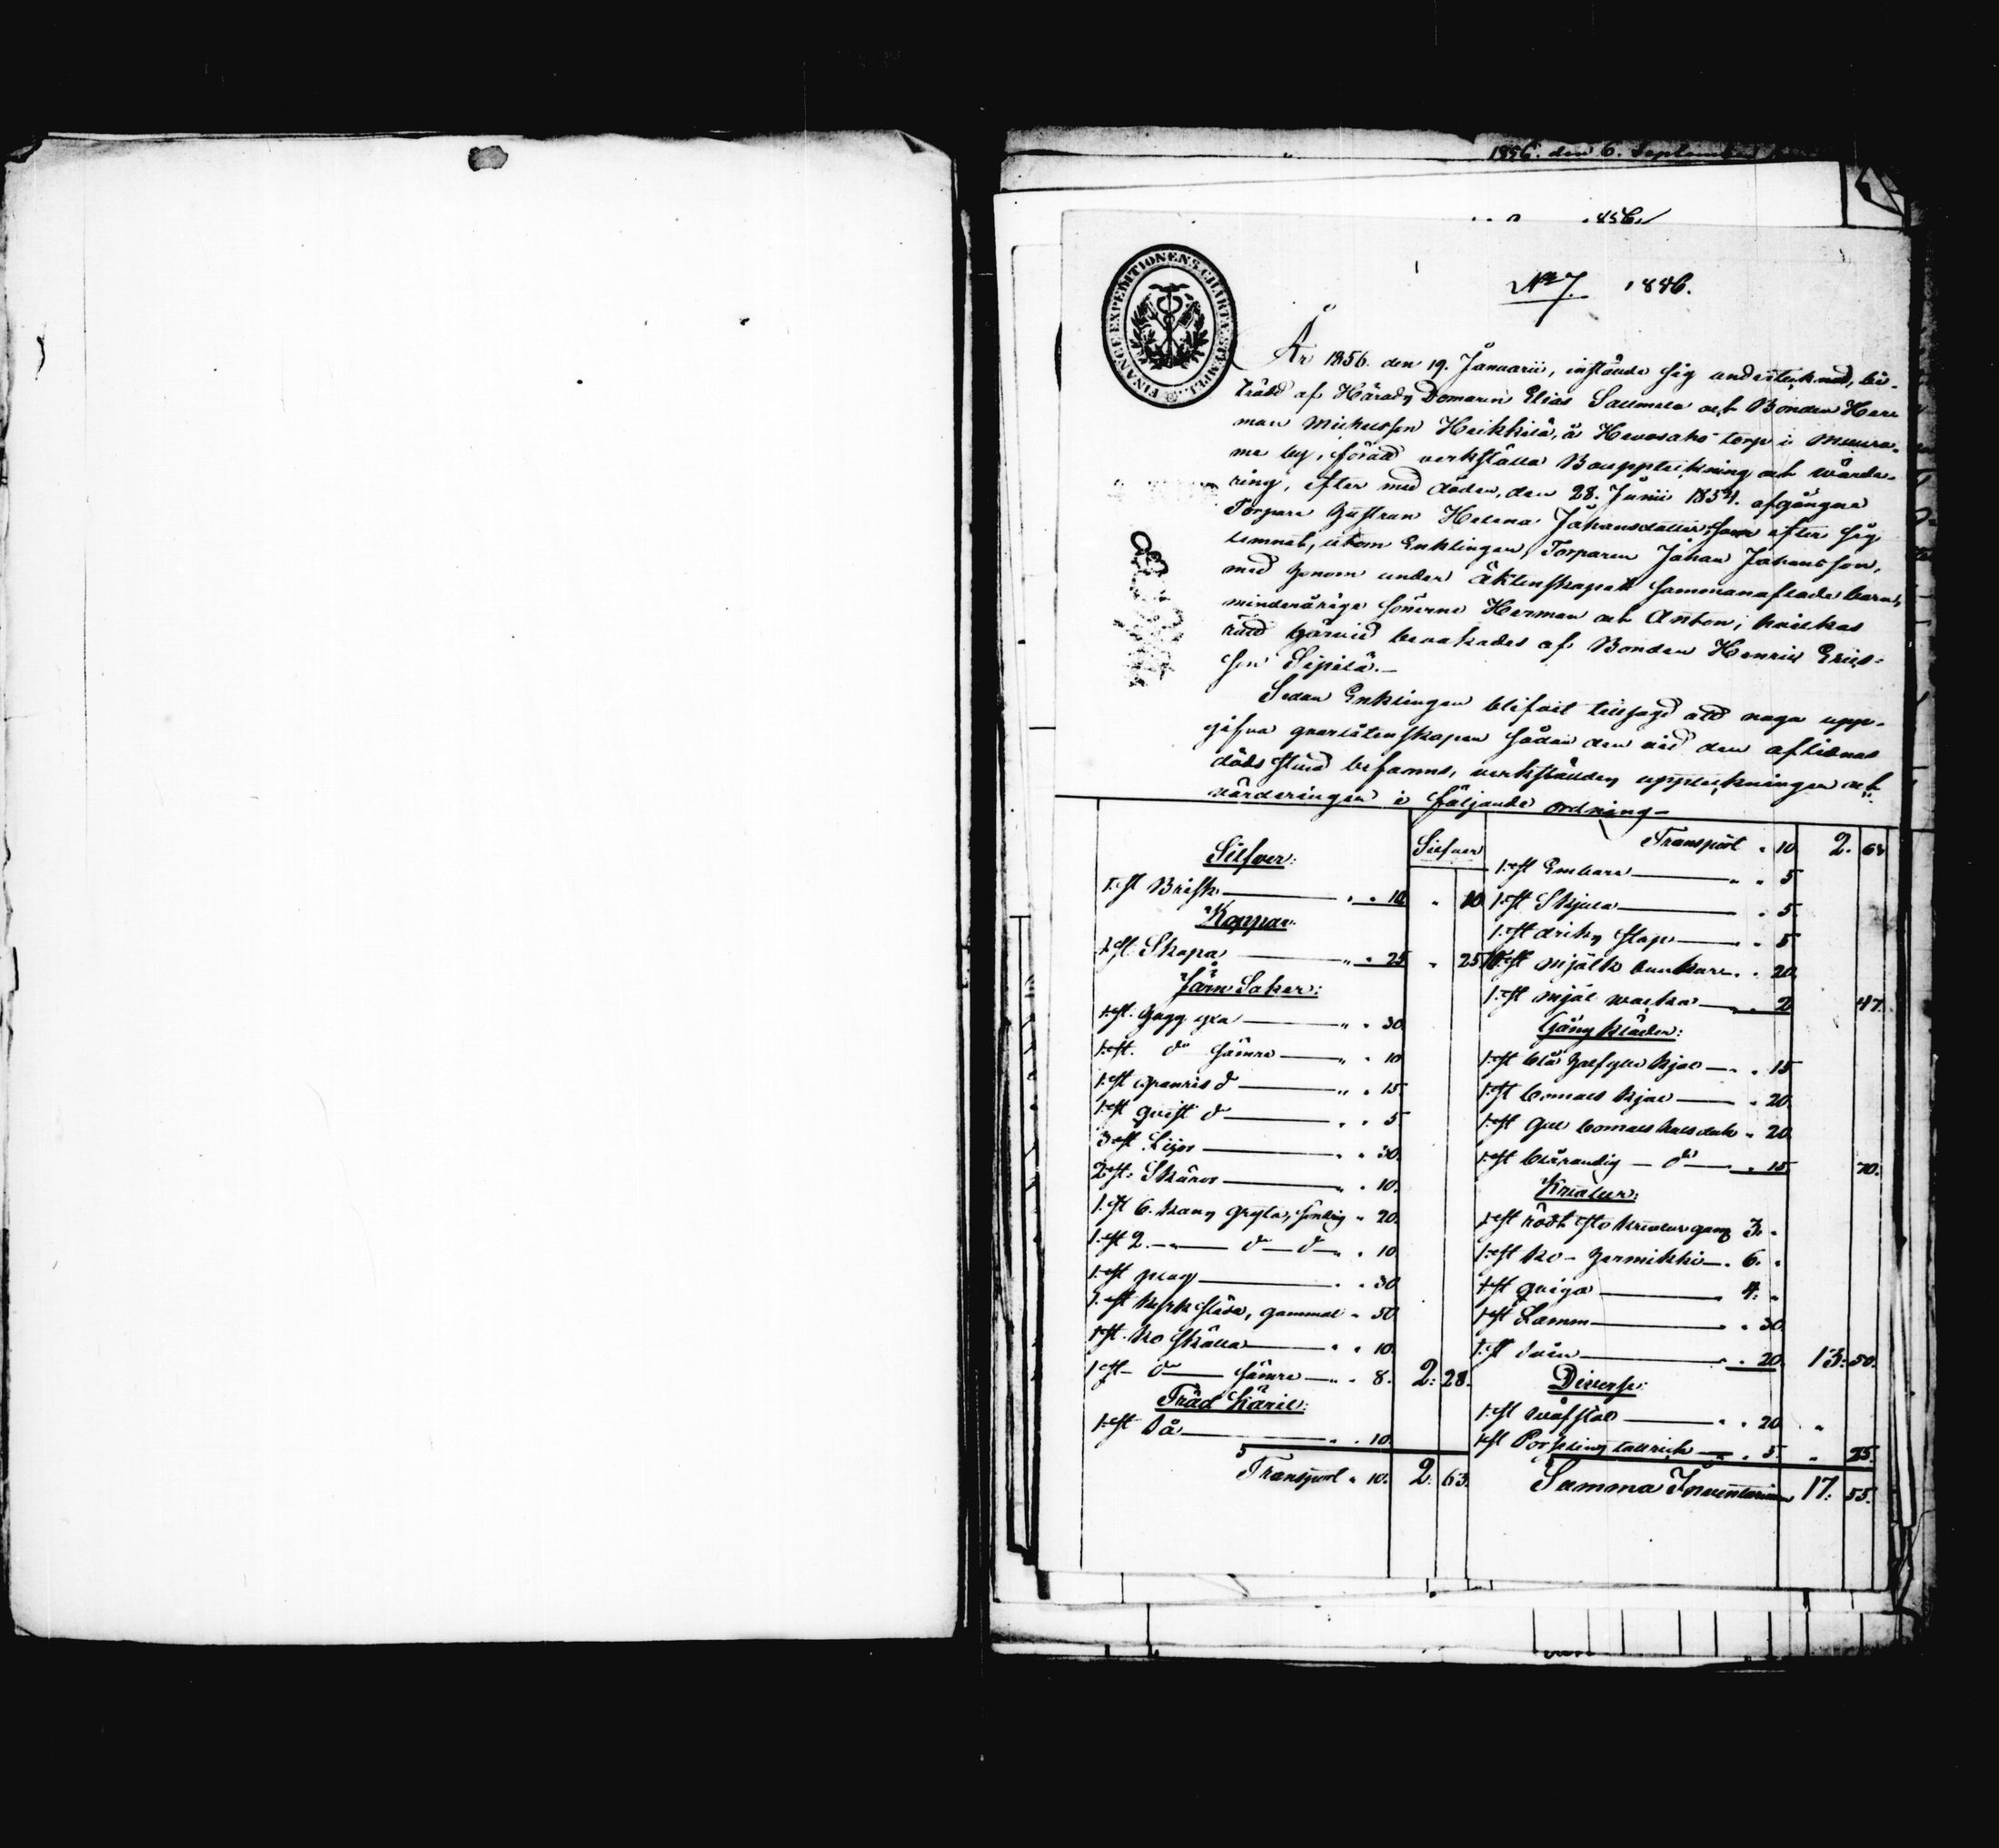 1856. den 6. September
FINANCE EXPEDITIONENS CHARTÆ STEMPEL.
No 7. 1856.
År 1856. den 19. Januarii, instälde sig undertecknad, bi-
trädd af Härads Domaren Elias Sallmela och Bonden Her-
man Michelsson Heikkilä, å Hevosaho torp i Muura-
me by, föratt verkställa Bouppteckning och wärde-
ring, efter med döden, den 28. Junii 1854. afgångne
Torpare hustrun Helena Johansdotter; som efter sig
lemnat, utom Enklingen, Torparen Johan Johansson,
med honom under äktenskapet sammanaflade barn,
minderårige sönerne Herman och Anton; hvilkas
rätt härvid bevakades af Bonden Henrik Erics-
son Sipilä.—
Sedan Enklingen blifvit tillsagd att noga upp-
gifva qvarlåtenskapen sådan den vid den aflidnas
döds stund befanns, verkställdes uppteckningen och
värderingen i följande ordning—
Silfver:
Silfver
1. st Brisk — " " 10. " 10
Koppar:
1. st. Skopa — " " 25. " 25
Järn Saker:
1. st. hugg yxa — " " 30.
1. st. do sämre — " " 10
1. st do — " " 15.
1. st qvist do — " " 5
3 st Lijor — " " 30.
2 st. Skäror — " " 10.
1. st 6. kanns gryta, söndrig " 20.
1. st 2. — " — do — do — " " 10
1. st plog — " " 30
1. st kyrksläda, gammal " 50
1. st. ko skälla — " " 10.
1 st — do — sämre — " " 8. 2: 28.
Träd Käril:
1. st Så — " " 10.
Transport " 10. 2: 63.
Transport " 10 2. 63
1. st Embare — " " 5
1. st Skjula — " 5.
1. st dricks stop — " 5
10. st mjölk bunkar " " 20.
1. st mjöl — " " 2 47.
Gång kläder:
1. st blå halfylle kjol — " " 15
1. st bomuls kjol — " 20.
1. st gul bomuls halsduk " 20.
1. st blårandig — do — " 15 70.
Kreatur:
1. st rödt sto 3. "
1. st ko — Hermikki — " 6. "
1 st qviga — 4: "
1 st Lamm — " 30.
1. st svin — " " 20. 13: 50.
Diverse:
1. st wäfstol — " " 20 "
1. st Porslins tallrick — " " 5. " 25.
Summa Inventarium 17: 55.